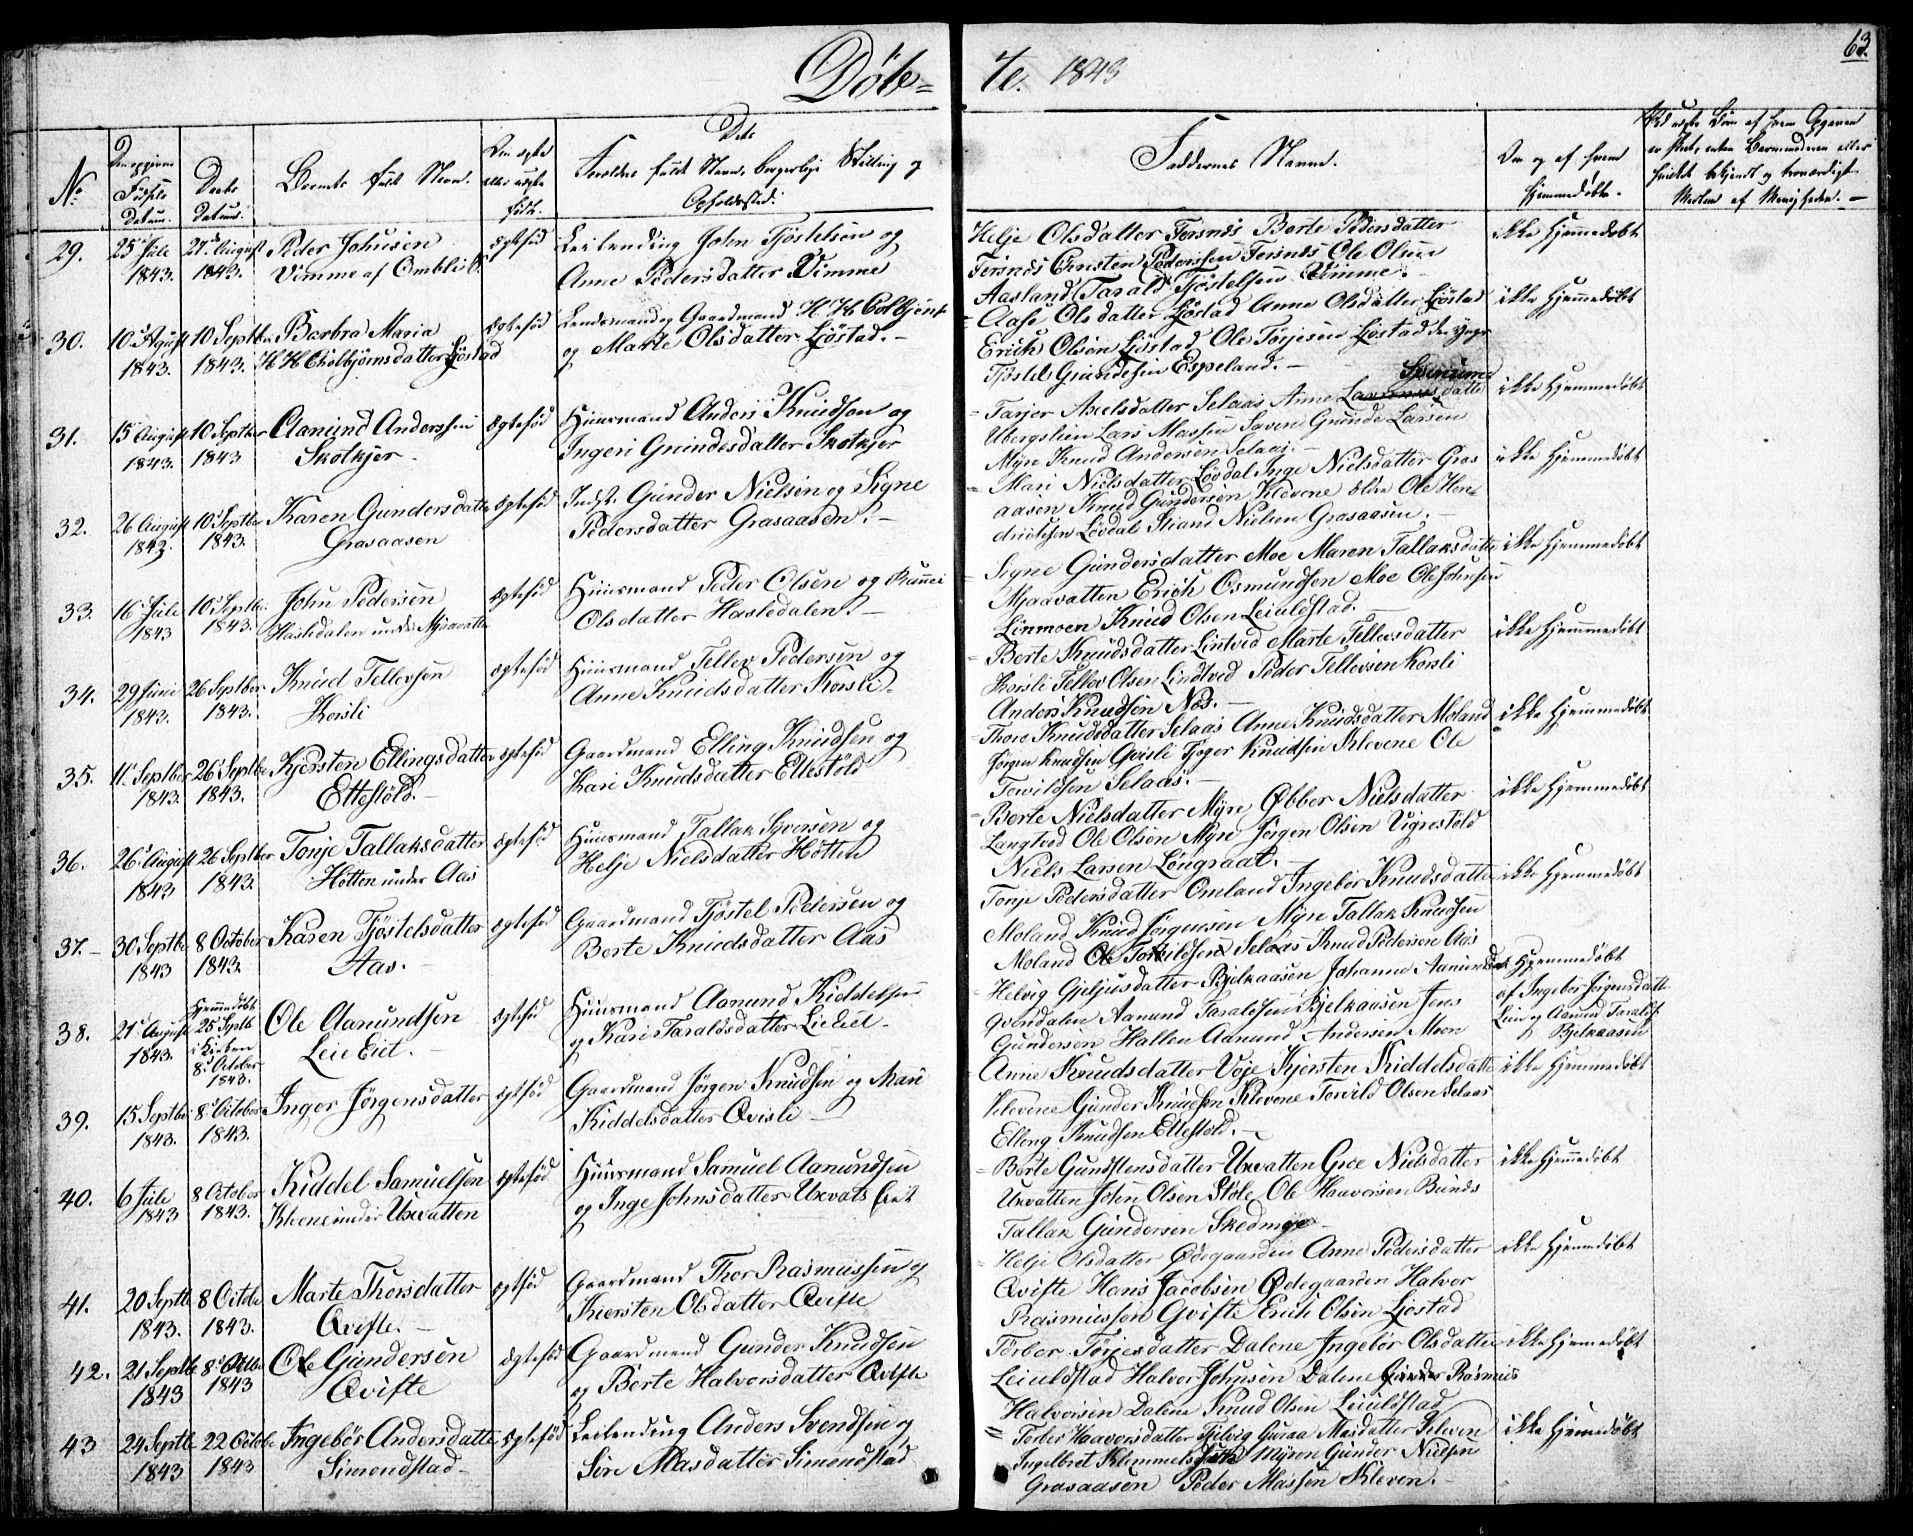 Døb-
te. 1843
63.
No
Den opgivne Fødsels Datum.
Daabs Datum.
Barnets fulde Navn.
Om ægte eller uægte født.
Dets
Forældres fulde Navn, borgerlige Stilling og
Opholdssted.
Faddernes Navne.
Om og af hvem
hjemmedøbt.
29.
25 Juli
1843.
27 August
1843.
Peder Johnsen
Vimme af Omblie S.
ægtefød
Leilending John Tjöstelsen og
Anne Pedersdatter Vimme
Helje Olsdatter Fersnes Berte Pedersdatter
Fersnes Thosten Pederssen Fersnes Ole Olsen
Aasland Tarald Tjöstelsen Vimme.
ikke hjemmedøbt
30.
10 August
1843.
10 Septbr
1843.
Barbra Maria
H H Colbjörnsdatter Ljöstad
ægtefød
Lensmand og Gaardmand H H Colbjörns
og Marte Olsdatter Ljöstad.-
Aase Olsdatter Ljöstad Anne Olsdatter Ljöstad
Erich Olsen Ljöstad Ole Törjesen Ljöstad den yngr
Tjöstel Gundesen Espeland.-
ikke hjemmedøbt
31.
15 August
1843.
10 Septber
1843
Aanund Anderssen
Skotkjer.
ægtefød
Huusmand Anders Knudsen og
Ingeri Gundesdatter Skotkjer
Tarjer Axelsdatter Selaas Anne datter
Ubergslien Lars Massen Saven Gunde Larsen
Myre Knud Andersen Selaas.-
ikke hjemmedøbt
32.
26 August
1843.
10 Septber
1843.
Karen Gundersdatter
Grasaasen
ægtefød
Indst. Gunder Nielsen og Signe
Pedersdatter Grasaasen.-
Mari Nielsdatter Lövdal Inge Nielsdatter Gras
aasen Knud Gundersen Klevene ældre Ole Hen-
drichsen Lövdal Strand Nielsen Grasaasen.-
ikke hjemmedøbt
33.
16 Juli
1843
10 Septbr
1843.
John Pedersen
Hasledalen under Mjaavatn
ægtefød
Huusmand Peder Olsen og Gunnei
Olsdatter Hasledalen.-
Signe Gundersdatter Moe Maren Tallaksdatter
Mjaavatten Erich Osmundsen Moe Ole Johnsen
Linmoen Knud Olsen Leiuldstad.-
ikke hjemmedøbt
34.
29 Juni
1843.
26 Septber
1843.
Knud Tellevsen
Korsli
ægtefød
Huusmand Tellev Pedersen og
Anne Knudsdatter Korsli.
Berte Knudsdatter Lintvid Marte Tellevsdatter
Korsli Tellev Olsen Lindtvid Peder Tellevsen Korsli
Anders Knudsen Næs.-
ikke hjemmedøbt
35.
11 Septber
1843.
26 Septbr
1843.
Kjersten Ellingsdatter
Ettestöld.-
ægtefød
Gaardmand Elling Knudsen og
Kari Knudsdatter Ettestöld
Thore Knudsdatter Selaas Anne Knudsdatter Moland
Jörgen Knudsen Qvisli Tjöger Knudsen Klevene Ole
Torvildsen Selaas.-
ikke hjemmedøbt
36.
26 August
1843
26 Septber
1843.
Tonje Tallaksdatter
Hötten under Aas
ægtefød
Huusmand Tallak Syversen og
Helje Nielsdatter Hötten
Berte Nielsdatter Myre Öbber Nielsdatter
Langtved Ole Olsen Myre Jörgen Olsen Vigrestöld
Niels Larsen Löngraat.-
ikke hjemmedøbt
37.-
30 Septbr
1843
8 October
1843.
Karen Tjöstelsdatter
Aas.-
ægtefød
Gaardmand Tjöstel Pedersen og
Berte Knudsdatter Aas
Tonje Pedersdatter Omland Ingebör Knudsdatter
Moland Knud Jörgensen Myre Tallak Knudsen
Moland Ole Torkildsen Selaas Knud Pedersen Aas
ikke hjemmedøbt
38.
21 August
1843.
hjemmedøbt
25 Septb
i Kirken
8 October
1843.
Ole Aanundsen
Leie Eiet.-
ægtefød
Huusmand Aanund Kiddelsen
og Kari Taraldsdatter Lieeiet.-
Helvig Gjeljusdatter Bjelkaasen Johanne Aanundsdat
Qvendalen Aanund Taraldsen Bjelkaasen Jens
Gundersen Hallen Aanund Andersen Moen
Hjemmedøbt
af Ingebor Jörgensdatter
Leie og Aanund Taralds
Bjelkaasen
39.
15 Septbr
1843.
8 October
1843.
Inger Jörgensdatter
ægtefød
Gaardmand Jörgen Knudsen og Mari
Kiddelsdatter Qvisle-
Anne Knudsdatter Voje Kjersten Kiddelsdatter
Klevene Gunder Knudsen Klevene Torvild Olsen Selaas
Elling Knudsen Ettestöld.-
ikke hjemmedøbt
40.
6 Juli
1843
8 October
1843.
Kiddel Samuelsen
Kleone under Uxvatten
ægtefød
Huusmand Samuel Aanundsen
og Inge Johnsdatter Uxvats Eiet
Berte Gundstensdatter Uxvatten Groe Nielsdatter
Uxvatten John Olsen Stöle Ole Haavorsen Bunds
Tallak Gundersen Skedmoe
ikke hjemmedøbt
41.
20 Septb
1843.
8 Octbr
1843.
Marte Thorsdatter
Qvifte.-
ægtefød
Gaardmand Thor Rasmussen og
Kiersten Olsdatter Qvifte
Helje Olsdatter Ödegaarden Anne Pedersdatter
Qvifte Hans Jacobsen Ödegaarden Halvor
Rasmussen Qvifte Erich Olsen Ljöstad
ikke hjemmedøbt
42.
21 Septb
1843
8 Octbr
1843
Ole Gundersen
Qvifte
ægtefød
Gaardmand Gunder Knudsen
og Berte Halvorsdatter Qvifte
Torber Törjesdatter Dalene Ingebör Olsdatter
Leiuldstad Halvor Johnsen Dalene Rasmus
Halvorsen Dalene Knud Olsen Leiuldstad
ikke hjemmedøbt
43
24 Septb
1843
22 Octobr
1843
Ingebör Andersdatter
Simondstad-
ægtefød
Leilending Anders Svendsen og
Siri Masdatter Simondstad
Torber Haavorsdatter Tjelvig Guroa Masdatter Kleven
Ingelbret Klemmets Myren Gunder Nielsen
Grasaasen Peder Massen Kleven.-
ikke hjemmedøbt